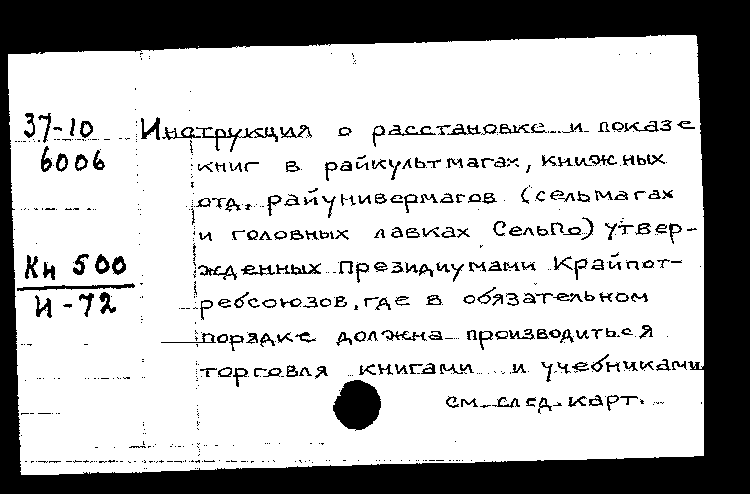 37-10
6006
Кн 500
И-72
Инструкция о расстановке и показе
книг в райкультмагах, книжных
отд. райунивермагов (сельмагах
и головных лавках СельПо) утвер-
жденных Президиумами Крайпот-
ребсоюзов, где в обязательном
порядке должна производиться
торговля книгами и учебниками
см. след. карт.